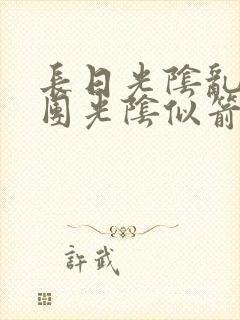 長日光陰亂
團光陰似箭
許武